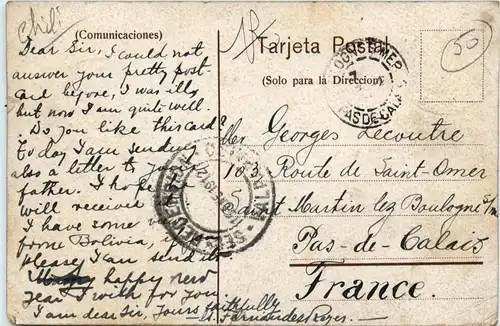 Chili
(Comunicaciones)
Dear Sir, I could not
answer your pretty post-
card before, I was ills
but now I am quite well.
Do you like this card?
To day I am sending
also a letter to your
father. I hope
will receive
I have some
from Bolivia, if
Please, I can send
happy new
year I wish for you
I am dear Sir, yours faithfully
A. Fernandes Rojas.
Tarjeta Postal
(Solo para la Direccion)
50
PAS DE CALAIS
Georges Lecoutre
Route de Saint-Omer
Saint Martin lez Boulogne s/m
Pas-de-Calais
France.